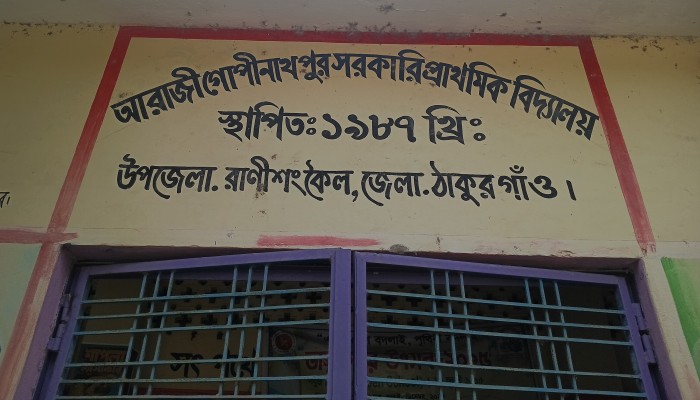 আরাজী গোপীনাথপুর সরকারি প্রাথমিক বিদ্যালয়
স্থাপিতঃ ১৯৮৭ খ্রিঃ
উপজেলা. রাণীশংকৈল, জেলা. ঠাকুরগাঁও।
সৎ পথে